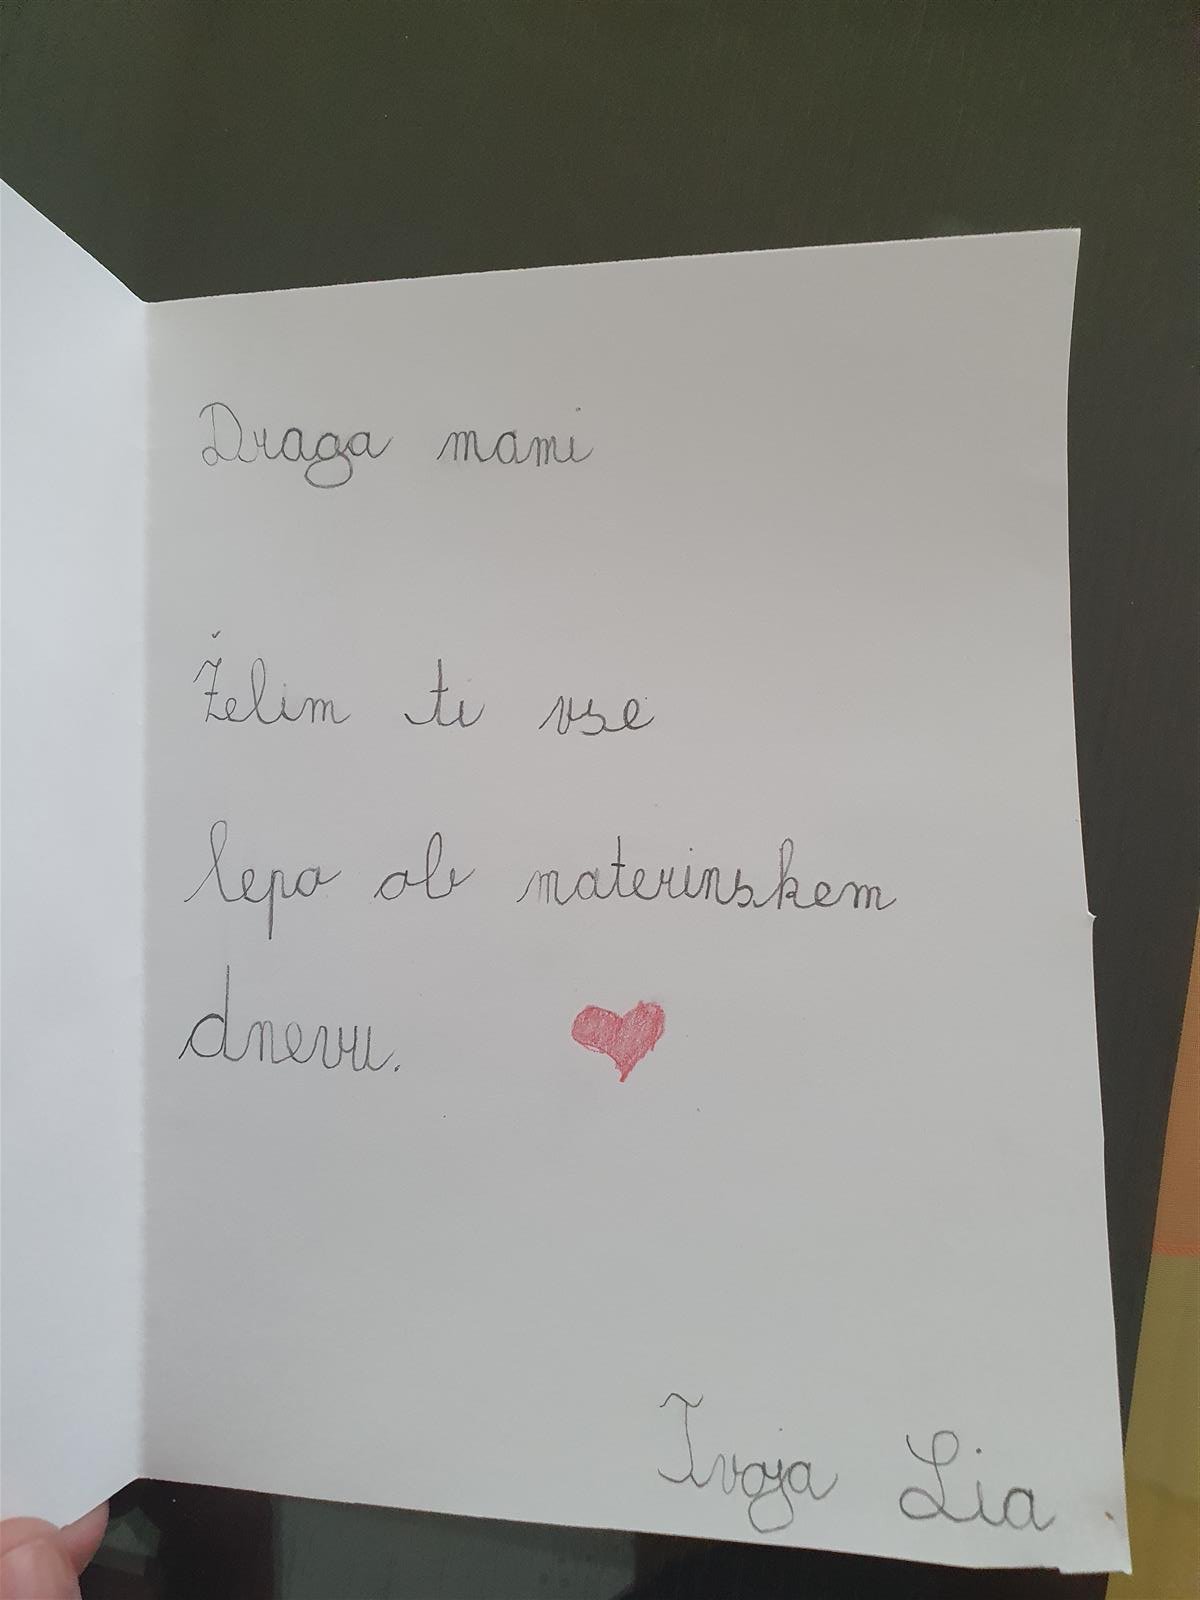 Draga mami
Želim ti vse
lepo ob materinskem
dnevu.
Tvoja Lia